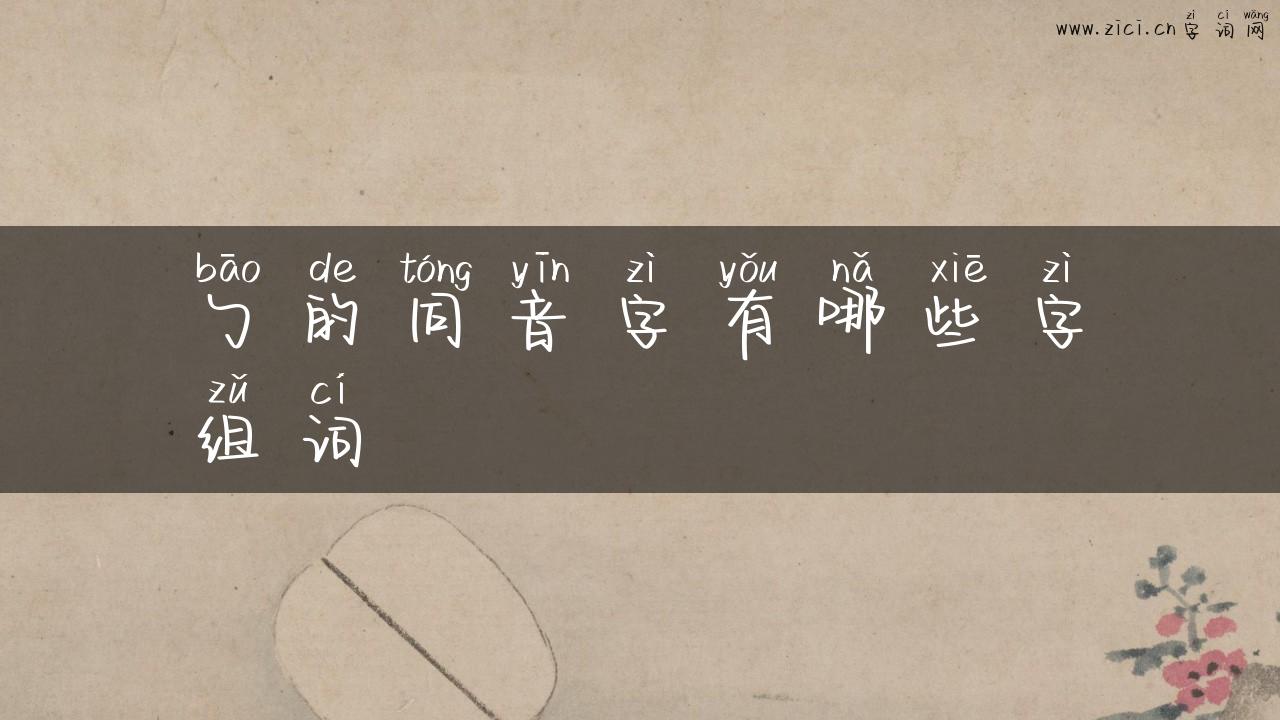 zì cí wǎng
www.zici.cn 字 词 网
bāo de tóng yīn zì yǒu nǎ xiē zì
勹 的 同 音 字 有 哪 些 字
zǔ cí
组 词